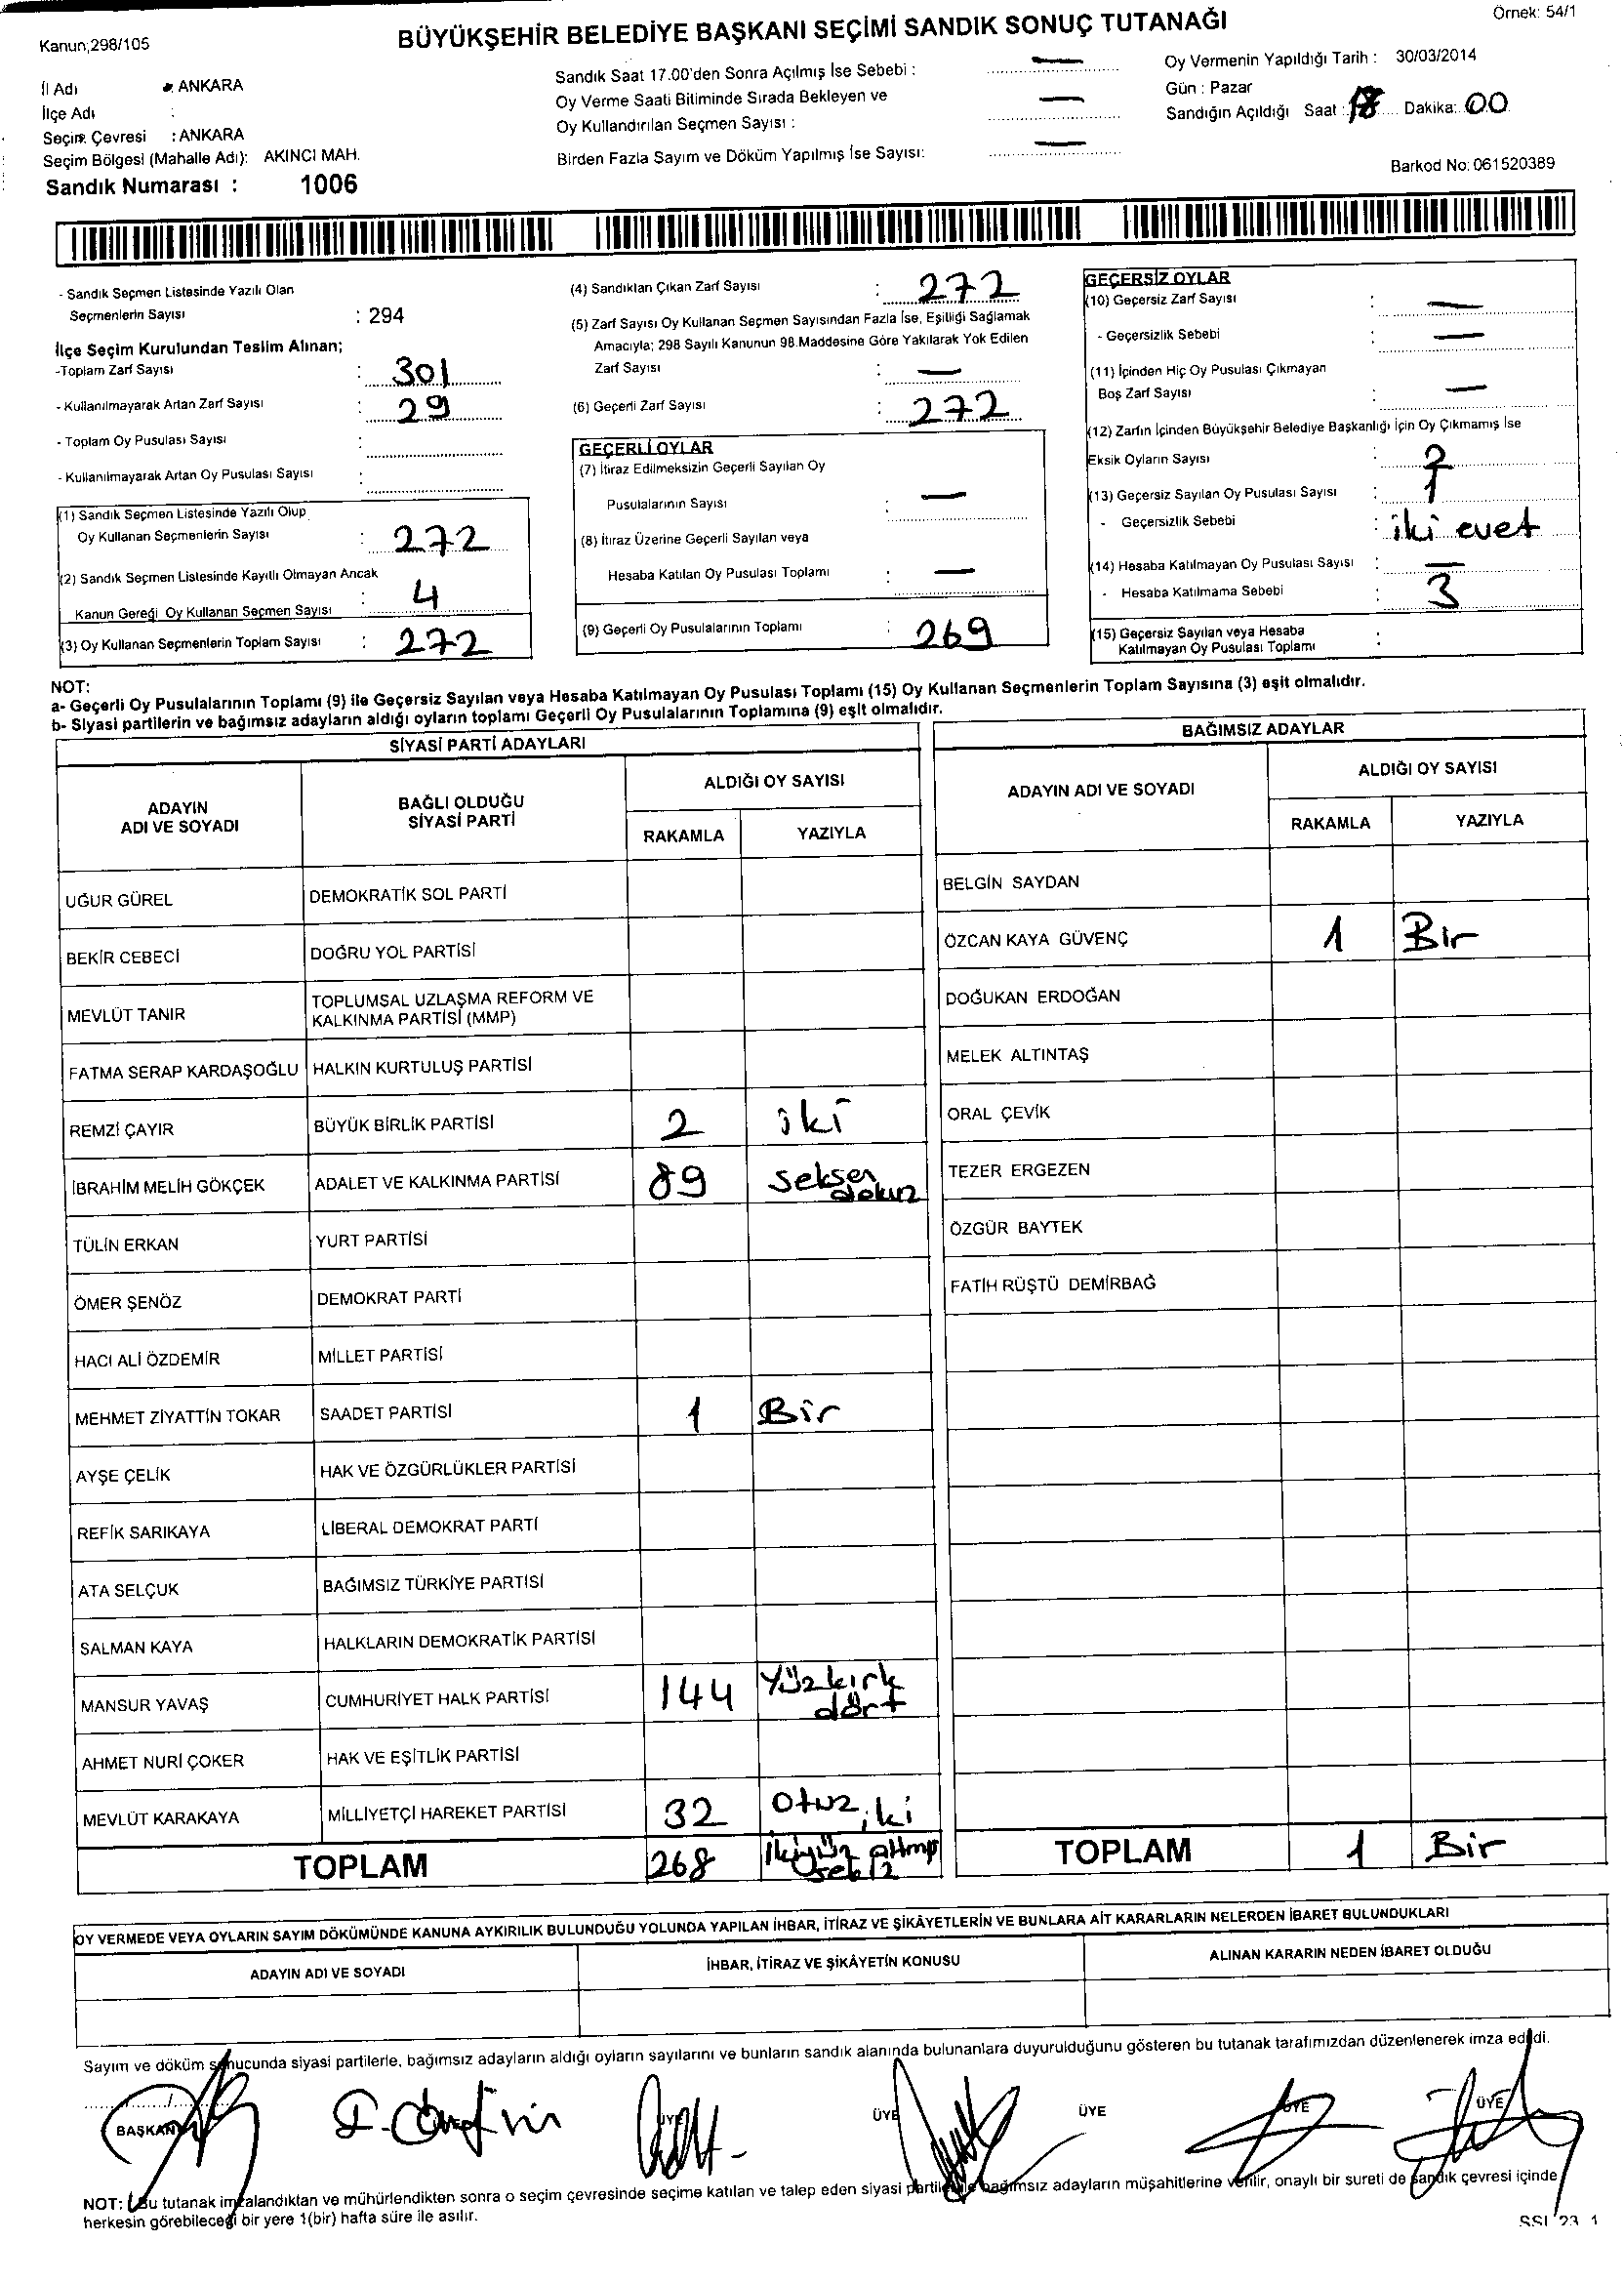 Örnek: 54/1
Kanun;298/105
BÜYÜKŞEHİR BELEDİYE BAŞKANI SEÇİMİ SANDIK SONUÇ TUTANAĞI
İl Adı : ANKARA
İlçe Adı :
Seçim Çevresi : ANKARA
Seçim Bölgesi (Mahalle Adı): AKINCI MAH.
Sandık Numarası : 1006
Sandık Saat 17.00'den Sonra Açılmış İse Sebebi : —
Oy Verme Saati Bitiminde Sırada Bekleyen ve
Oy Kullandırılan Seçmen Sayısı : —
Birden Fazla Sayım ve Döküm Yapılmış İse Sayısı: —
Oy Vermenin Yapıldığı Tarih : 30/03/2014
Gün : Pazar
Sandığın Açıldığı Saat : 18 Dakika: 00
Barkod No: 061520389
- Sandık Seçmen Listesinde Yazılı Olan
Seçmenlerin Sayısı : 294
İlçe Seçim Kurulundan Teslim Alınan;
-Toplam Zarf Sayısı : 301
- Kullanılmayarak Artan Zarf Sayısı : 29
- Toplam Oy Pusulası Sayısı :
- Kullanılmayarak Artan Oy Pusulası Sayısı :
(1) Sandık Seçmen Listesinde Yazılı Olup
Oy Kullanan Seçmenlerin Sayısı : 272
(2) Sandık Seçmen Listesinde Kayıtlı Olmayan Ancak
Kanun Gereği Oy Kullanan Seçmen Sayısı : 4
(3) Oy Kullanan Seçmenlerin Toplam Sayısı : 272
(4) Sandıktan Çıkan Zarf Sayısı : 272
(5) Zarf Sayısı Oy Kullanan Seçmen Sayısından Fazla İse, Eşitliği Sağlamak
Amacıyla; 298 Sayılı Kanunun 98.Maddesine Göre Yakılarak Yok Edilen
Zarf Sayısı : —
(6) Geçerli Zarf Sayısı : 272
GEÇERLİ OYLAR
(7) İtiraz Edilmeksizin Geçerli Sayılan Oy
Pusulalarının Sayısı : —
(8) İtiraz Üzerine Geçerli Sayılan veya
Hesaba Katılan Oy Pusulası Toplamı : —
(9) Geçerli Oy Pusulalarının Toplamı : 269
GEÇERSİZ OYLAR
(10) Geçersiz Zarf Sayısı : —
- Geçersizlik Sebebi : —
(11) İçinden Hiç Oy Pusulası Çıkmayan
Boş Zarf Sayısı : —
(12) Zarfın İçinden Büyükşehir Belediye Başkanlığı İçin Oy Çıkmamış İse
Eksik Oyların Sayısı :
(13) Geçersiz Sayılan Oy Pusulası Sayısı :
- Geçersizlik Sebebi : iki evet
(14) Hesaba Katılmayan Oy Pusulası Sayısı : —
- Hesaba Katılmama Sebebi : 3
(15) Geçersiz Sayılan veya Hesaba
Katılmayan Oy Pusulası Toplamı :
NOT:
a- Geçerli Oy Pusulalarının Toplamı (9) ile Geçersiz Sayılan veya Hesaba Katılmayan Oy Pusulası Toplamı (15) Oy Kullanan Seçmenlerin Toplam Sayısına (3) eşit olmalıdır.
b- Siyasi partilerin ve bağımsız adayların aldığı oyların toplamı Geçerli Oy Pusulalarının Toplamına (9) eşit olmalıdır.
SİYASİ PARTİ ADAYLARI
ADAYIN ADI VE SOYADI BAĞLI OLDUĞU SİYASİ PARTİ ALDIĞI OY SAYISI
RAKAMLA YAZIYLA
UĞUR GÜREL DEMOKRATİK SOL PARTİ
BEKİR CEBECİ DOĞRU YOL PARTİSİ
MEVLÜT TANIR TOPLUMSAL UZLAŞMA REFORM VE KALKINMA PARTİSİ (MMP)
FATMA SERAP KARDAŞOĞLU HALKIN KURTULUŞ PARTİSİ
REMZİ ÇAYIR BÜYÜK BİRLİK PARTİSİ 2 iki
İBRAHİM MELİH GÖKÇEK ADALET VE KALKINMA PARTİSİ 89 seksen dokuz
TÜLİN ERKAN YURT PARTİSİ
ÖMER ŞENÖZ DEMOKRAT PARTİ
HACI ALİ ÖZDEMİR MİLLET PARTİSİ
MEHMET ZİYATTİN TOKAR SAADET PARTİSİ 1 Bir
AYŞE ÇELİK HAK VE ÖZGÜRLÜKLER PARTİSİ
REFİK SARIKAYA LİBERAL DEMOKRAT PARTİ
ATA SELÇUK BAĞIMSIZ TÜRKİYE PARTİSİ
SALMAN KAYA HALKLARIN DEMOKRATİK PARTİSİ
MANSUR YAVAŞ CUMHURİYET HALK PARTİSİ 144 Yüz kırk dört
AHMET NURİ ÇOKER HAK VE EŞİTLİK PARTİSİ
MEVLÜT KARAKAYA MİLLİYETÇİ HAREKET PARTİSİ 32 Otuz iki
TOPLAM 268 İkiyüz altmış sekiz
BAĞIMSIZ ADAYLAR
ADAYIN ADI VE SOYADI ALDIĞI OY SAYISI
RAKAMLA YAZIYLA
BELGİN SAYDAN
ÖZCAN KAYA GÜVENÇ 1 Bir
DOĞUKAN ERDOĞAN
MELEK ALTINTAŞ
ORAL ÇEVİK
TEZER ERGEZEN
ÖZGÜR BAYTEK
FATİH RÜŞTÜ DEMİRBAĞ
TOPLAM 1 Bir
OY VERMEDE VEYA OYLARIN SAYIM DÖKÜMÜNDE KANUNA AYKIRILIK BULUNDUĞU YOLUNDA YAPILAN İHBAR, İTİRAZ VE ŞİKÂYETLERİN VE BUNLARA AİT KARARLARIN NELERDEN İBARET BULUNDUKLARI
ADAYIN ADI VE SOYADI İHBAR, İTİRAZ VE ŞİKÂYETİN KONUSU ALINAN KARARIN NEDEN İBARET OLDUĞU
Sayım ve döküm sonucunda siyasi partilerle, bağımsız adayların aldığı oyların sayılarını ve bunların sandık alanında bulunanlara duyurulduğunu gösteren bu tutanak tarafımızdan düzenlenerek imza edildi.
BAŞKAN ÜYE ÜYE ÜYE ÜYE ÜYE
NOT: Bu tutanak imzalandıktan ve mühürlendikten sonra o seçim çevresinde seçime katılan ve talep eden siyasi partilerle bağımsız adayların müşahitlerine verilir, onaylı bir sureti de sandık çevresi içinde
herkesin görebileceği bir yere 1(bir) hafta süre ile asılır.